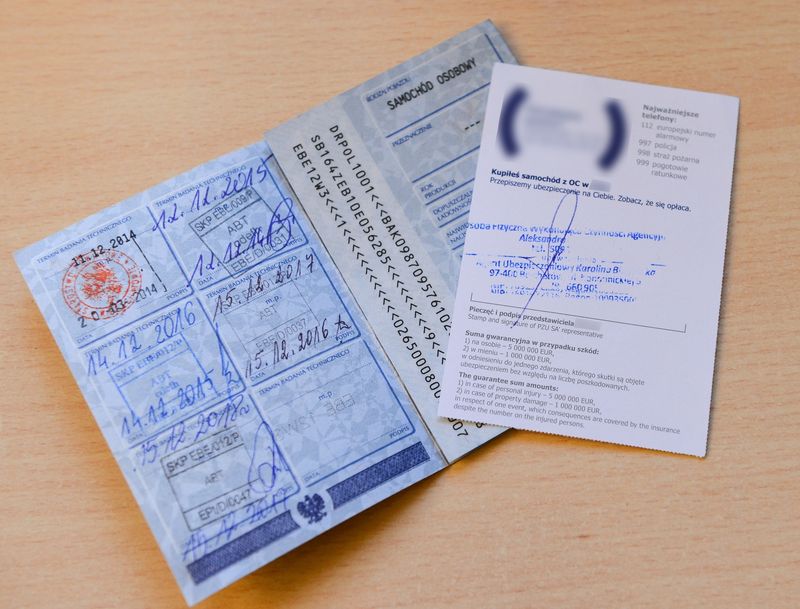 TERMIN BADANIA TECHNICZNEGO
11.12.2014
20.03.2014
DATA
PODPIS
TERMIN BADANIA TECHNICZNEGO
12.12.2015
SKP EBE/009/P
ABT
EBE/D/0037
12.12.14
DATA
PODPIS
TERMIN BADANIA TECHNICZNEGO
14.12.2016
SKP EBE/012/P
ABT
14.12.2015
TERMIN BADANIA TECHNICZNEGO
15.12.2017
EBE/D/0037
m.p.
15.12.2016
DATA
PODPIS
15.12.2018
SKP EBE/012/P
ABT
EPI/D/0047
TERMIN BADANIA TECHNICZNEGO
m.p.
DATA
PODPIS
RODZAJ POJAZDU
SAMOCHÓD OSOBOWY
PRZEZNACZENIE
---
ROK
PRODUKCJI
DOPUSZCZALNA
ŁADOWNOŚĆ
DRPOL1001<<BAK098709576102
EBE12W3<<<1
Najważniejsze
telefony:
112 europejski numer
alarmowy
997 policja
998 straż pożarna
999 pogotowie
ratunkowe
Kupiłeś samochód z OC w
Przepiszemy ubezpieczenie na Ciebie. Zobacz, że się opłaca.
Osoba Fizyczna Wykonująca Czynności Agencyjne
Aleksandra
Agent Ubezpieczeniowy Karolina B
97-400
Pieczęć i podpis przedstawiciela
Stamp and signature of PZU SA' representative
Suma gwarancyjna w przypadku szkód:
1) na osobie – 5 000 000 EUR,
2) w mieniu – 1 000 000 EUR,
w odniesieniu do jednego zdarzenia, którego skutki są objęte
ubezpieczeniem bez względu na liczbę poszkodowanych.
The guarantee sum amounts:
1) in case of personal injury – 5 000 000 EUR,
2) in case of property damage – 1 000 000 EUR,
in respect of one event, which consequences are covered by the insurance
despite the number on the injured persons.